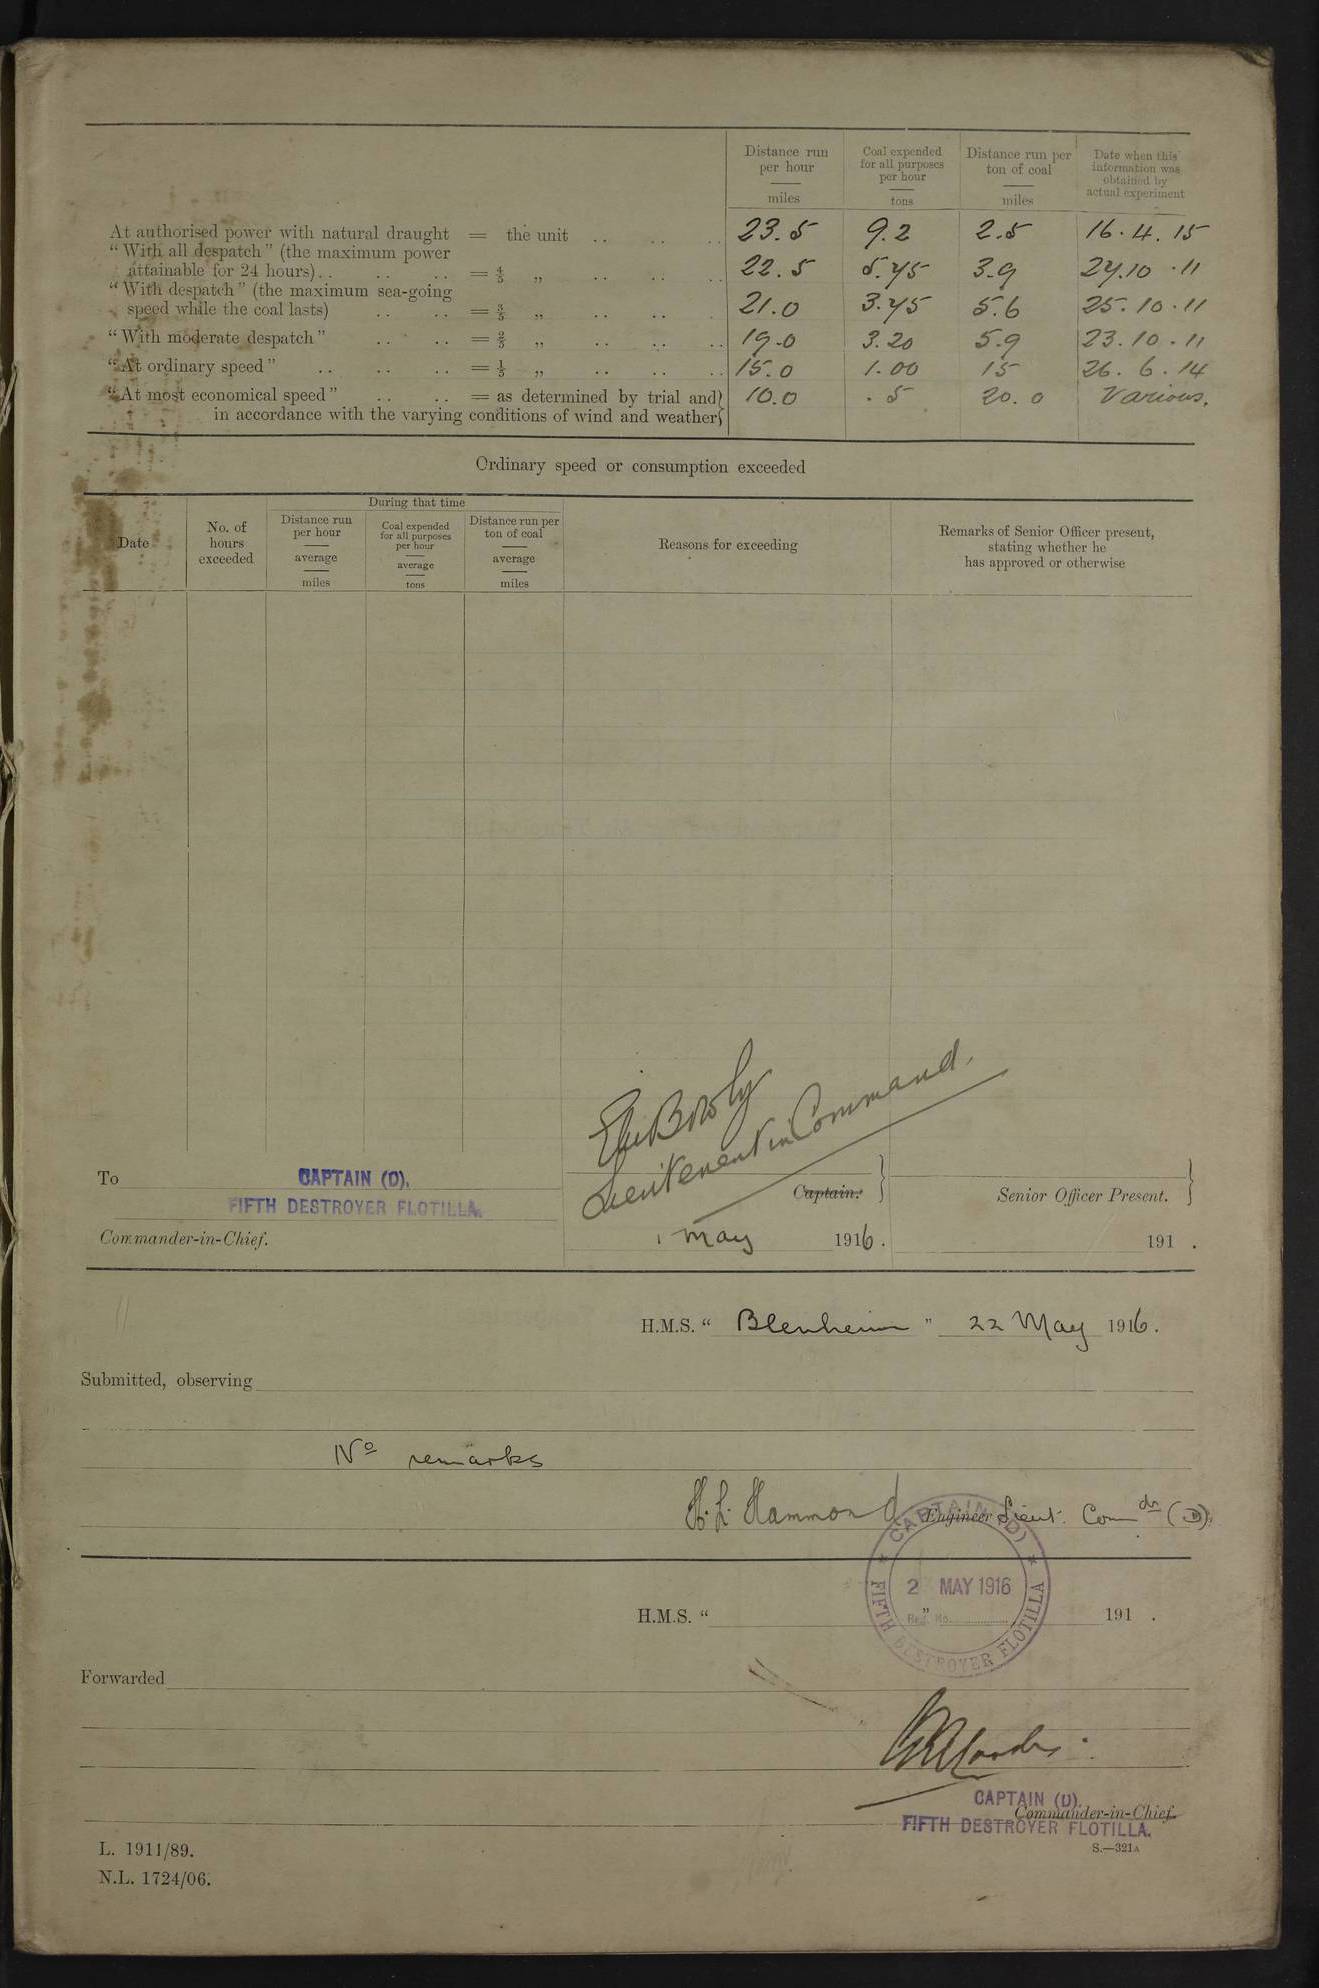 Distance run per hour miles
Coal expended for all purposes per hour tons
Distance run per ton of coal miles
Date when this information was obtained by actual experiment
At authorised power with natural draught = the unit .. .. .. 23.5 9.2 2.5 16.4.15
"With all despatch" (the maximum power
attainable for 24 hours) .. .. .. = 4/5 „ .. .. .. 22.5 5.75 3.9 27.10.11
"With despatch" (the maximum sea-going
speed while the coal lasts) .. .. = 3/5 „ .. .. .. 21.0 3.75 5.6 25.10.11
"With moderate despatch" .. .. = 2/5 „ .. .. .. 19.0 3.20 5.9 23.10.11
"At ordinary speed" .. .. .. = 1/5 „ .. .. .. 15.0 1.00 15 26.6.14
"At most economical speed" .. .. = as determined by trial and} 10.0 .5 20.0 Various.
in accordance with the varying conditions of wind and weather}
Ordinary speed or consumption exceeded
During that time
Date
No. of hours exceeded
Distance run per hour average miles
Coal expended for all purposes per hour average tons
Distance run per ton of coal average miles
Reasons for exceeding
Remarks of Senior Officer present, stating whether he has approved or otherwise
Lieutenant in Command.
To CAPTAIN (D).
FIFTH DESTROYER FLOTILLA.
Commander-in-Chief.
Captain.
1 May 1916.
Senior Officer Present.
191 .
H.M.S. "Blenheim" 22 May 1916.
Submitted, observing
No remarks
H. L. Hammond Engineer Lieut. Comdr (D).
CAPTAIN (D)
FIFTH DESTROYER FLOTILLA
2 MAY 1916
Reg. No.
H.M.S. " " 191 .
Forwarded
CAPTAIN (D).
Commander-in-Chief.
FIFTH DESTROYER FLOTILLA.
L. 1911/89.
S.—321A
N.L. 1724/06.